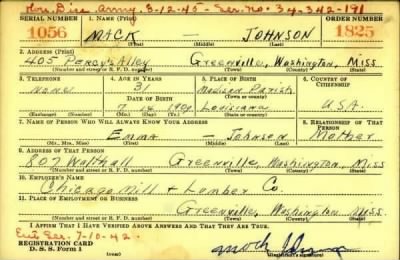 Hon. Dis. Army. 3-12-45 - Ser. No. 34-342-191
SERIAL NUMBER 1. NAME (Print) ORDER NUMBER
1056 MACK — JOHNSON 1825
(First) (Middle) (Last)
2. ADDRESS (Print)
405 Percy's Alley Greenville, Washington, Miss
(Number and street or R. F. D. number) (Town) (County) (State)
3. TELEPHONE 4. AGE IN YEARS 5. PLACE OF BIRTH 6. COUNTRY OF CITIZENSHIP
None 31 Madison Parish
DATE OF BIRTH
7 14 1909 Louisiana USA
(Mo.) (Day) (Yr.)
7. NAME OF PERSON WHO WILL ALWAYS KNOW YOUR ADDRESS 8. RELATIONSHIP OF THAT PERSON
Emma — Johnson Mother
(Mr., Mrs., Miss) (First) (Middle) (Last)
9. ADDRESS OF THAT PERSON
807 Walthall Greenville, Washington, Miss
(Number and street or R. F. D. number) (Town) (County) (State)
10. EMPLOYER'S NAME
Chicago Mill & Lumber Co.
11. PLACE OF EMPLOYMENT OR BUSINESS
Greenville, Washington Miss
(Number and street or R. F. D. number) (Town) (County) (State)
I AFFIRM THAT I HAVE VERIFIED ABOVE ANSWERS AND THAT THEY ARE TRUE.
Ent. Ser. 7-10-42.
REGISTRATION CARD
D. S. S. Form 1